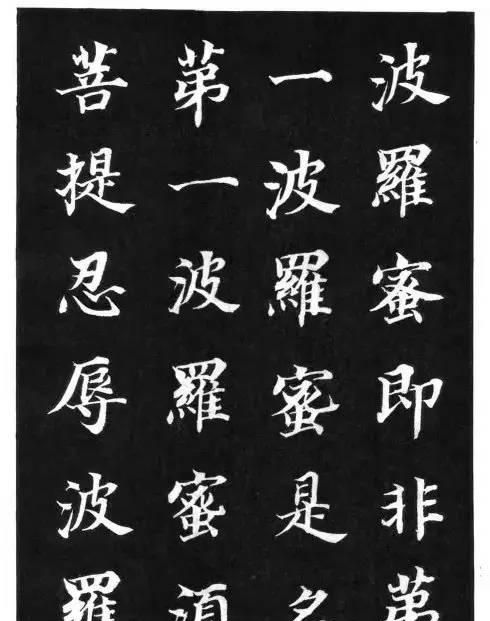 波羅蜜即非第
一波羅蜜是名
第一波羅蜜須
菩提忍辱波羅